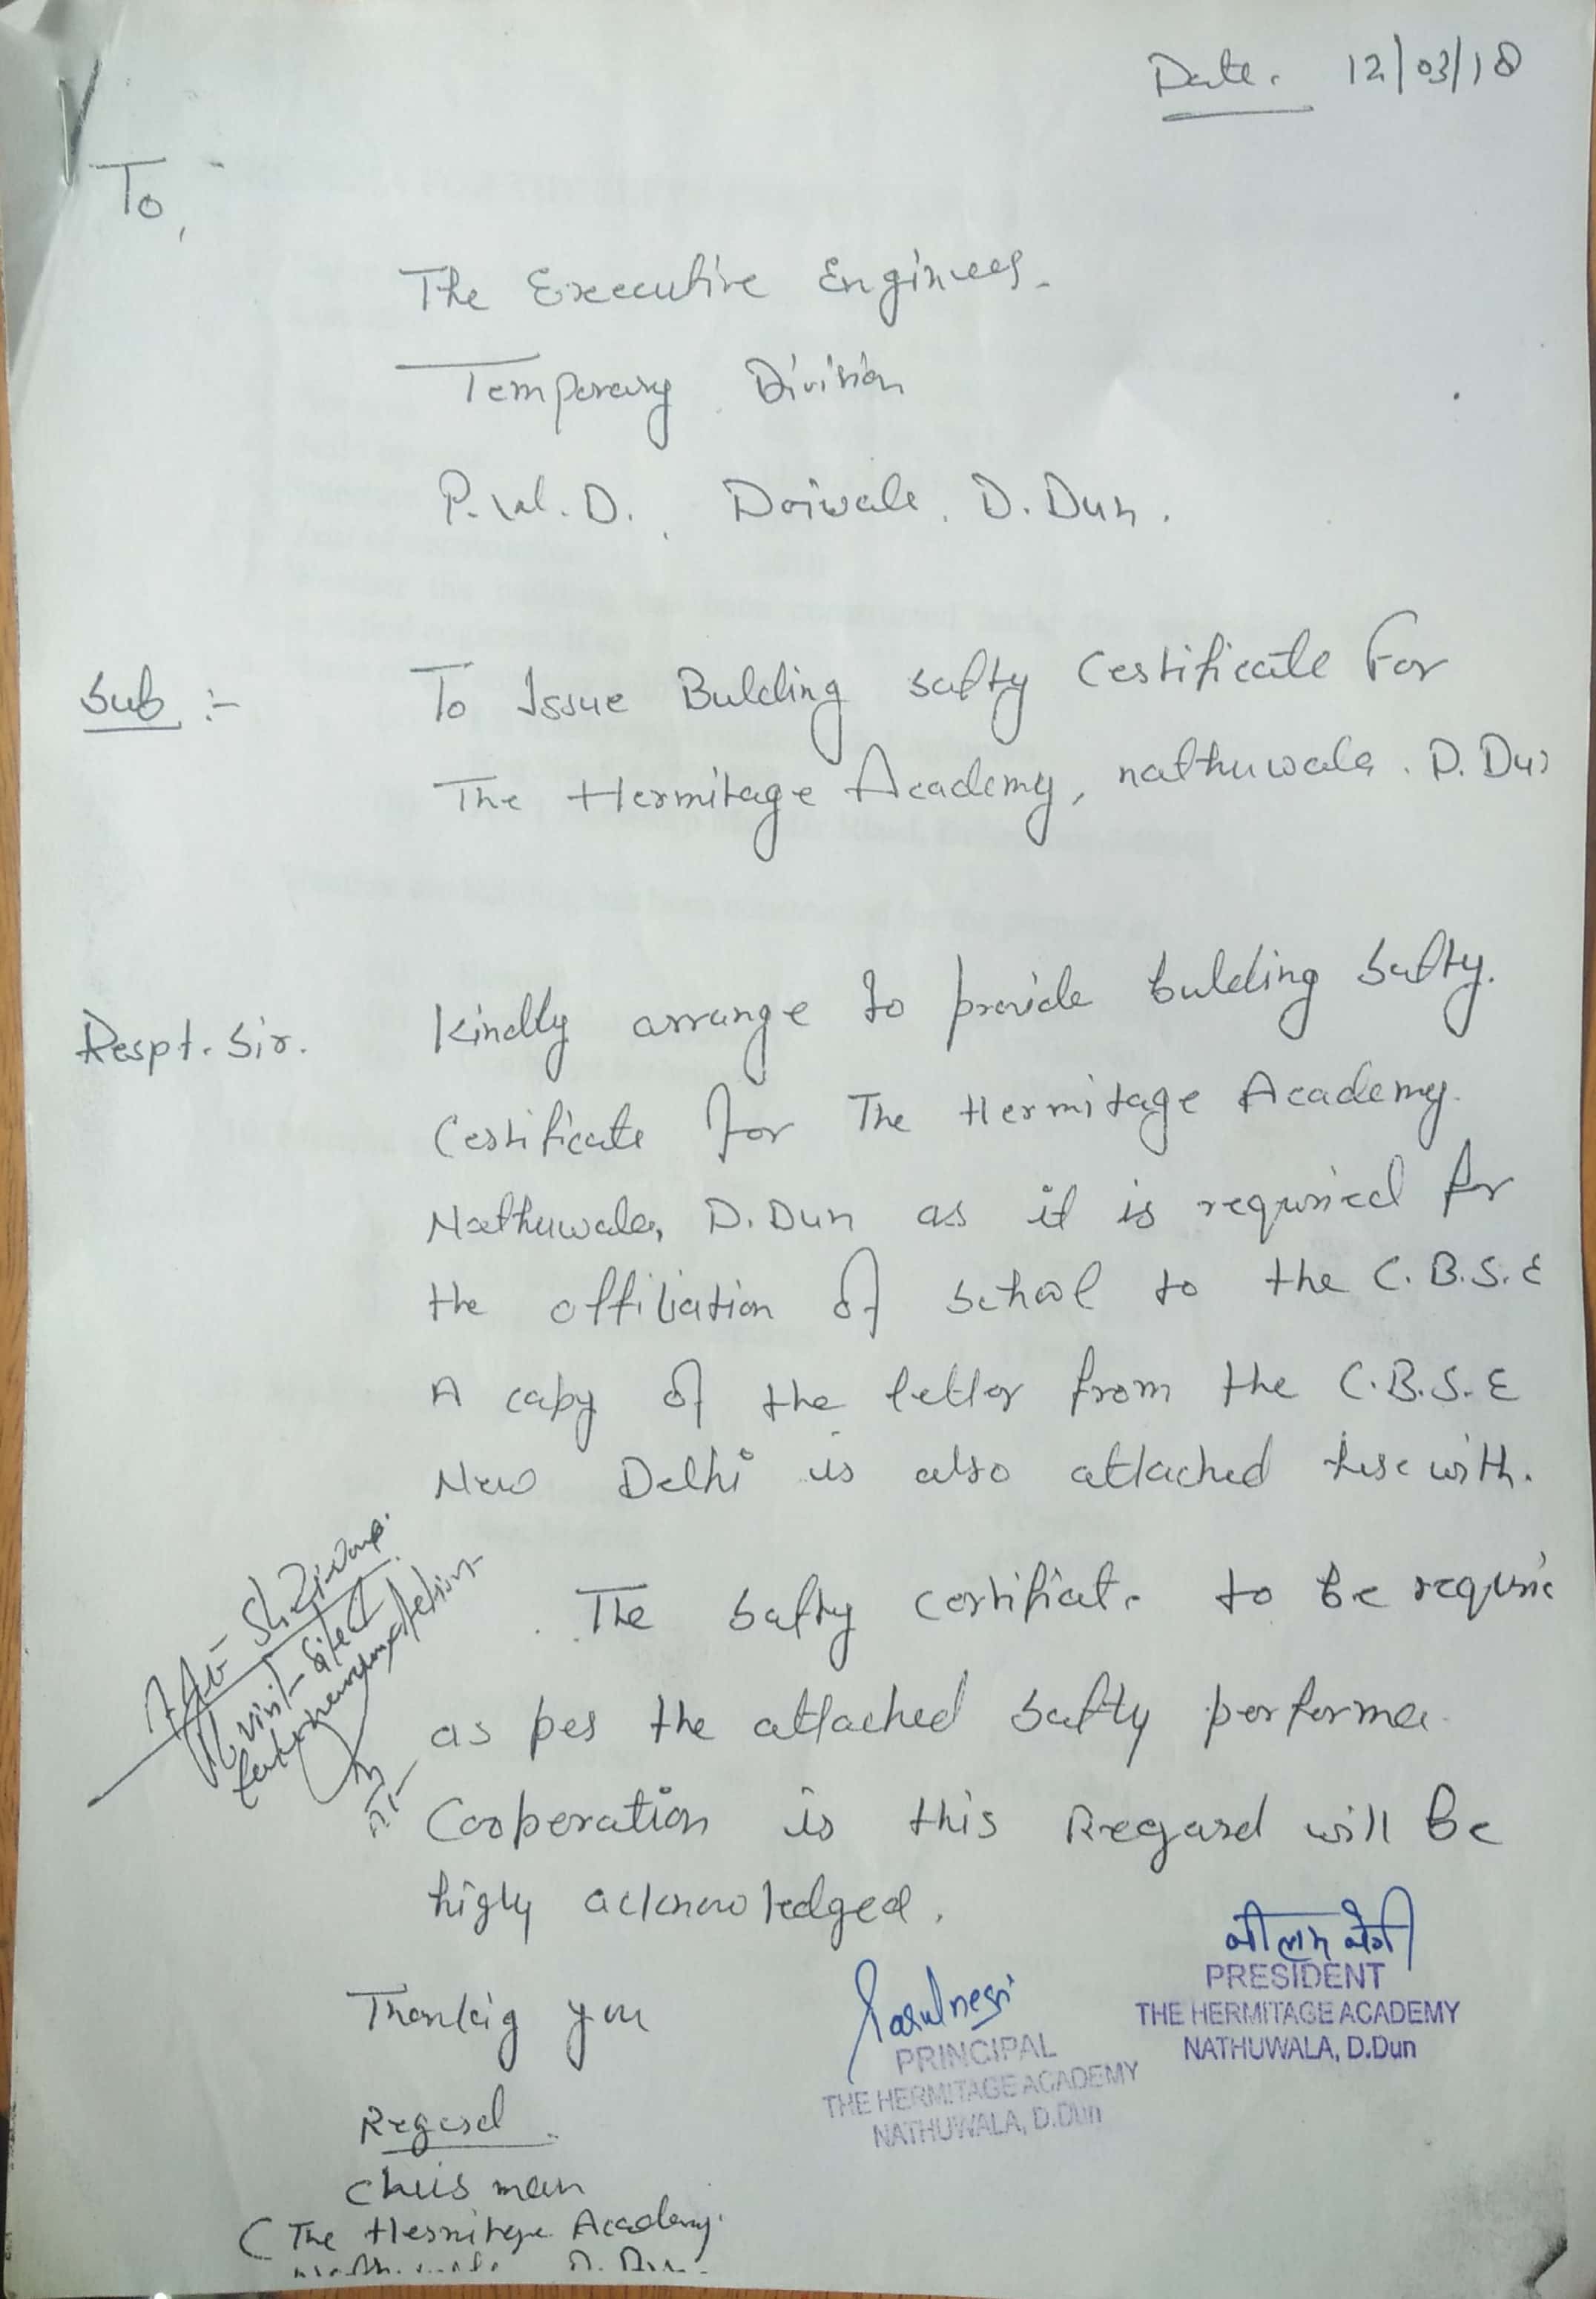 Date. 12/03/18
To,
The Executive Engineer.
Temporary Division
P.W.D. Doiwala. D.Dun.
Sub :- To Issue Bulding safty Certificate For
The Hermitage Academy, nathuwala. D.Dun
Respt. Sir. Kindly arrange to provide bulding safty.
Certificate for The Hermitage Academy.
Nathuwala, D.Dun as it is requried for
the affiliation of school to the C.B.S.E
A copy of the letter from the C.B.S.E
New Delhi is also attached herewith.
The safty certificate to be requrie
as per the attached safty performa.
Cooperation is this Regard will be
higly acknowledged.
Thankig you
नीलम नेगी
PRESIDENT
THE HERMITAGE ACADEMY
NATHUWALA, D.Dun
PRINCIPAL
THE HERMITAGE ACADEMY
NATHUWALA, D.Dun
Regard
Chairman
(The Hermitage Academy.
D.Dun.
visit